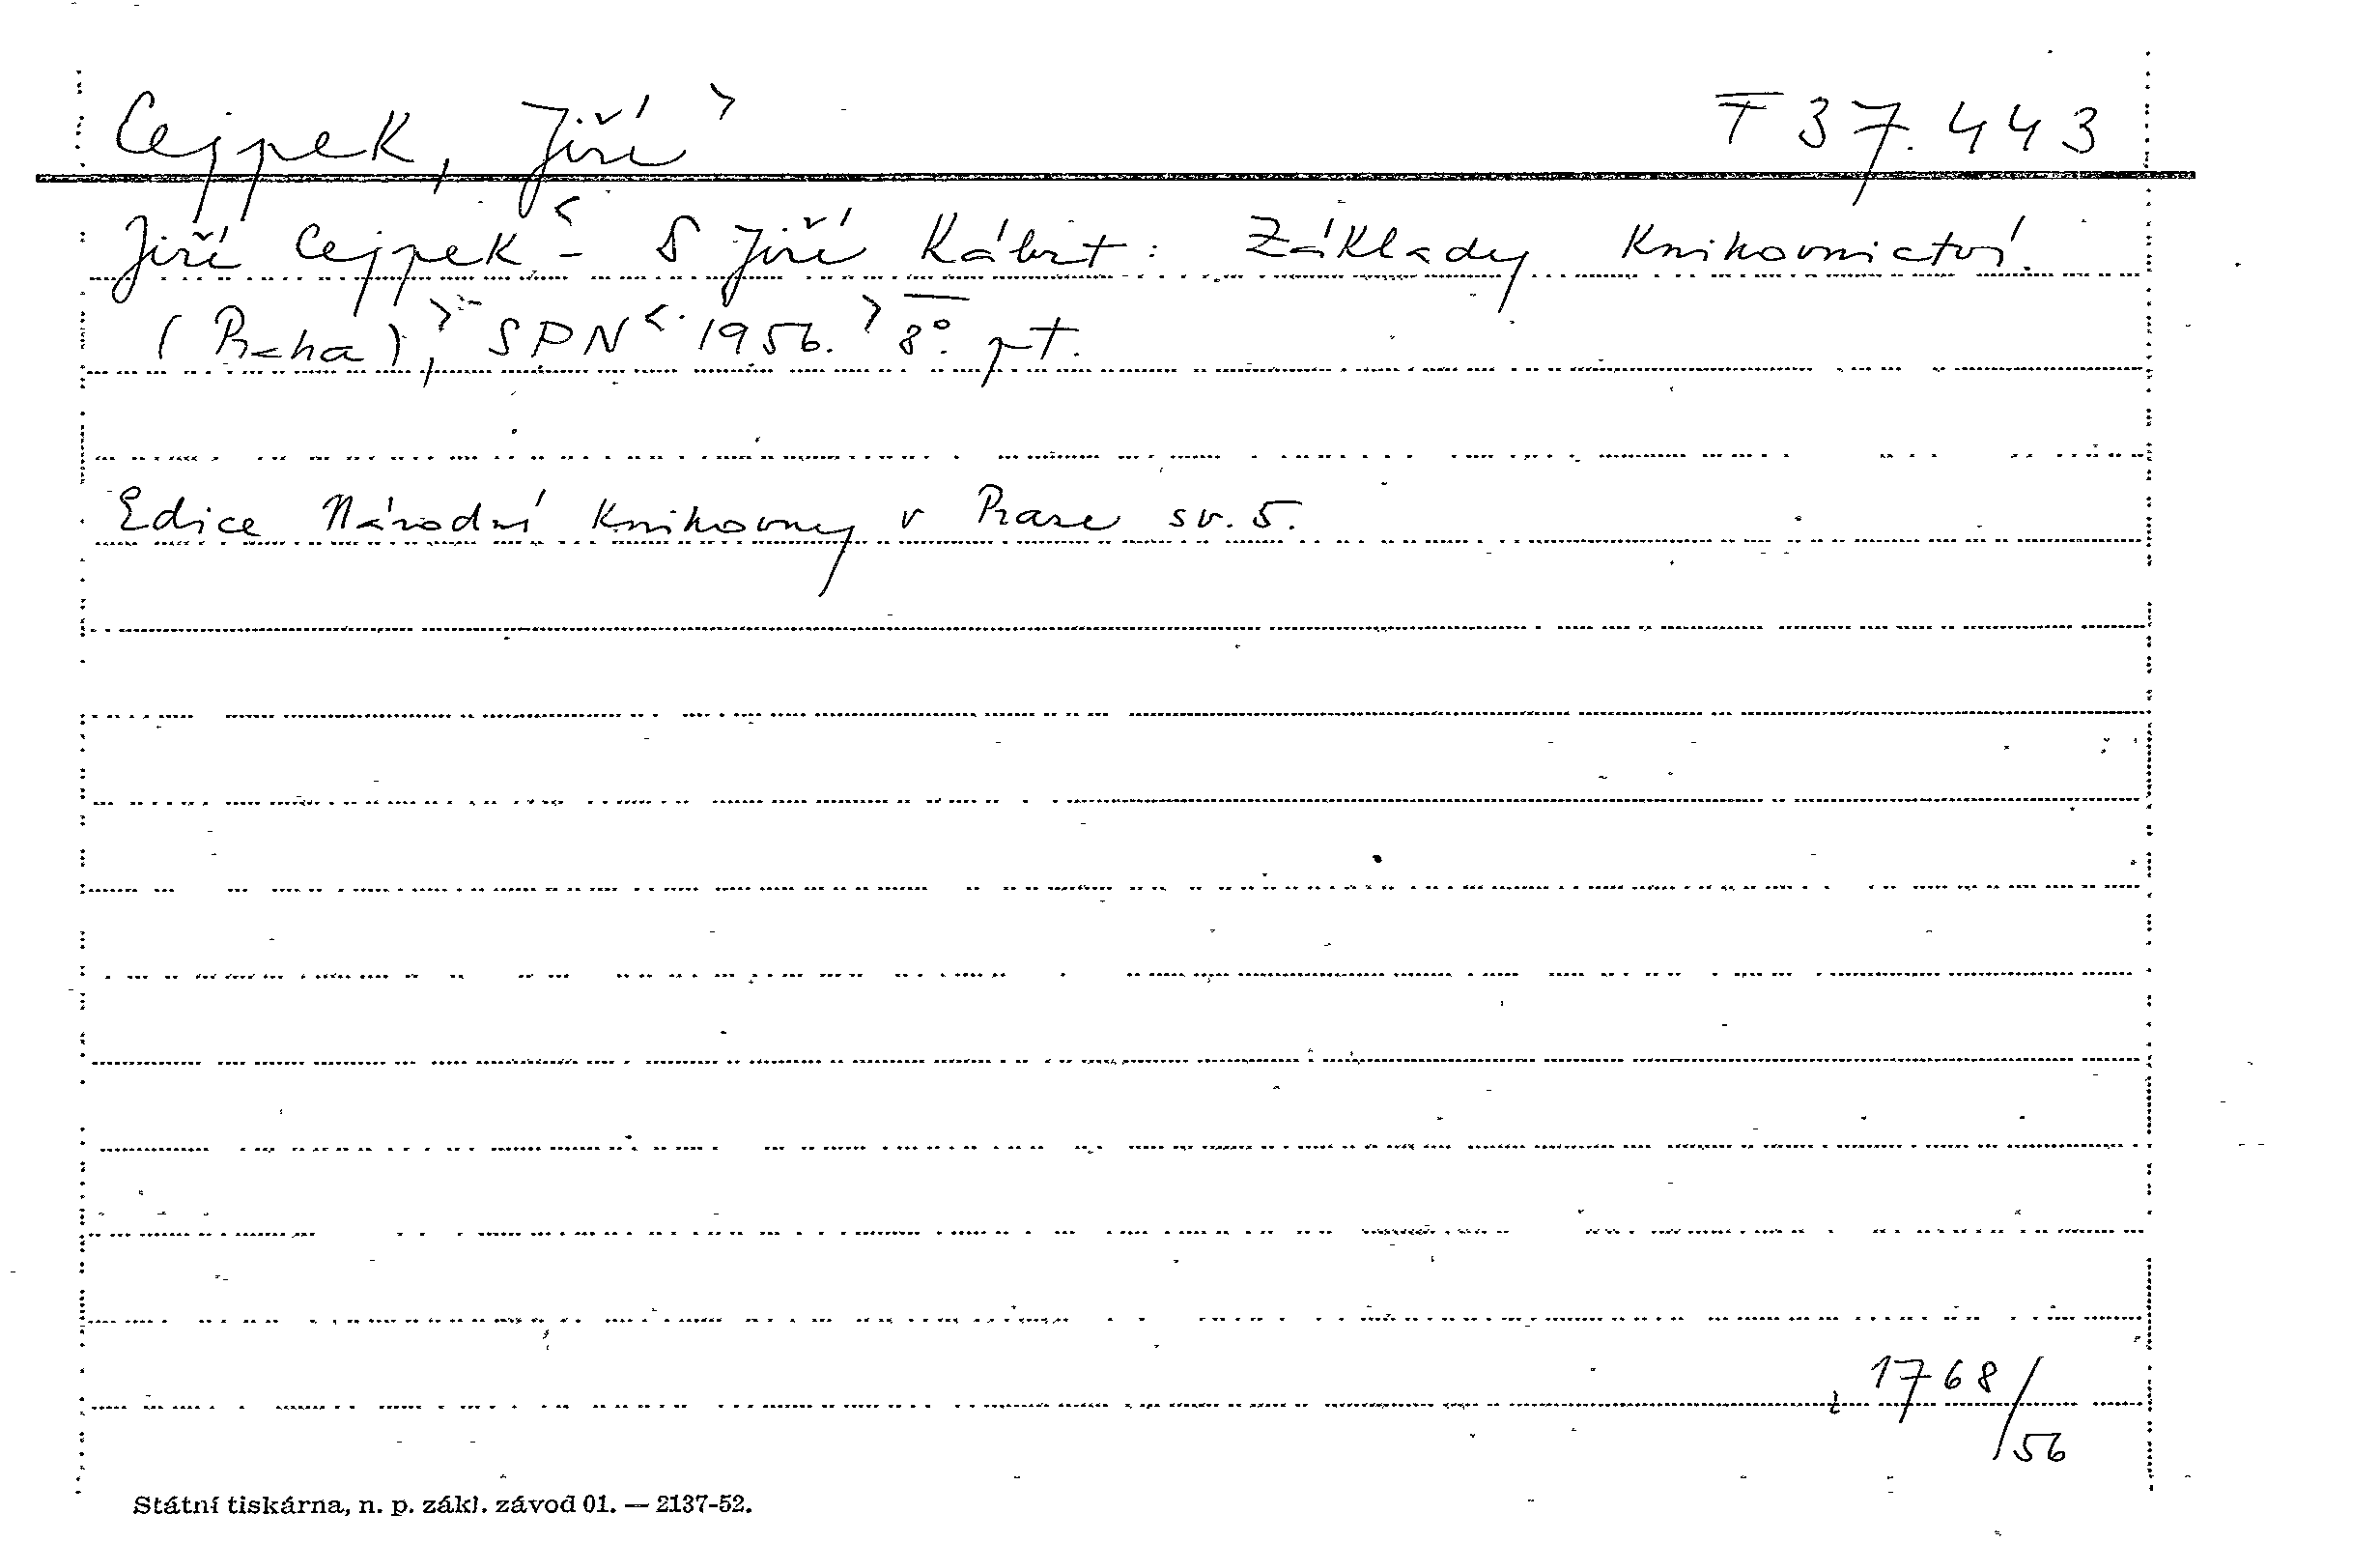 Cejpek, Jiří T 37.443
Jiří Cejpek - Jiří Kábrt: Základy knihovnictví.
(Praha), SPN 1956. 8°. pt.
Edice Národní knihovny v Praze sv. 5.
1768/56
Státní tiskárna, n. p. zákl. závod 01. — 2137-52.